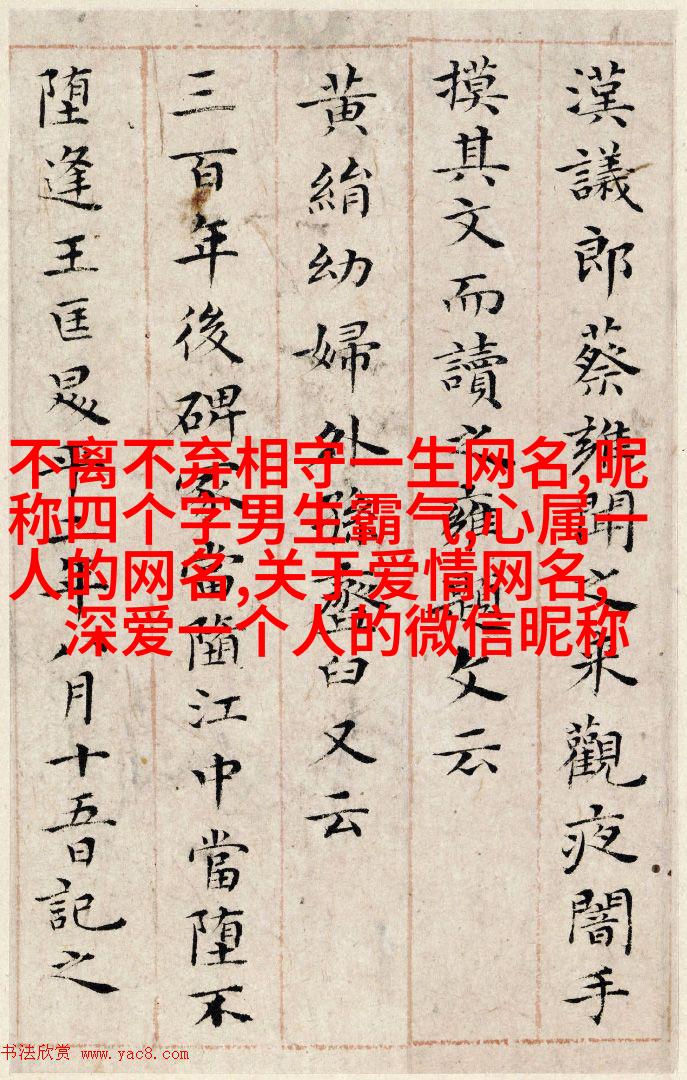 漢議郎蔡雍聞之來觀夜闇手
摸其文而讀之雍題文云
黃絹幼婦外孫齏臼又云
三百年後碑冢當墮江中當墮不
墮逢王匡昇平二年八月十五日記之
不离不弃相守一生网名,昵
称四个字男生霸气,心属一
人的网名,关于爱情网名,
深爱一个人的微信昵称
书法欣赏 www.yac8.com